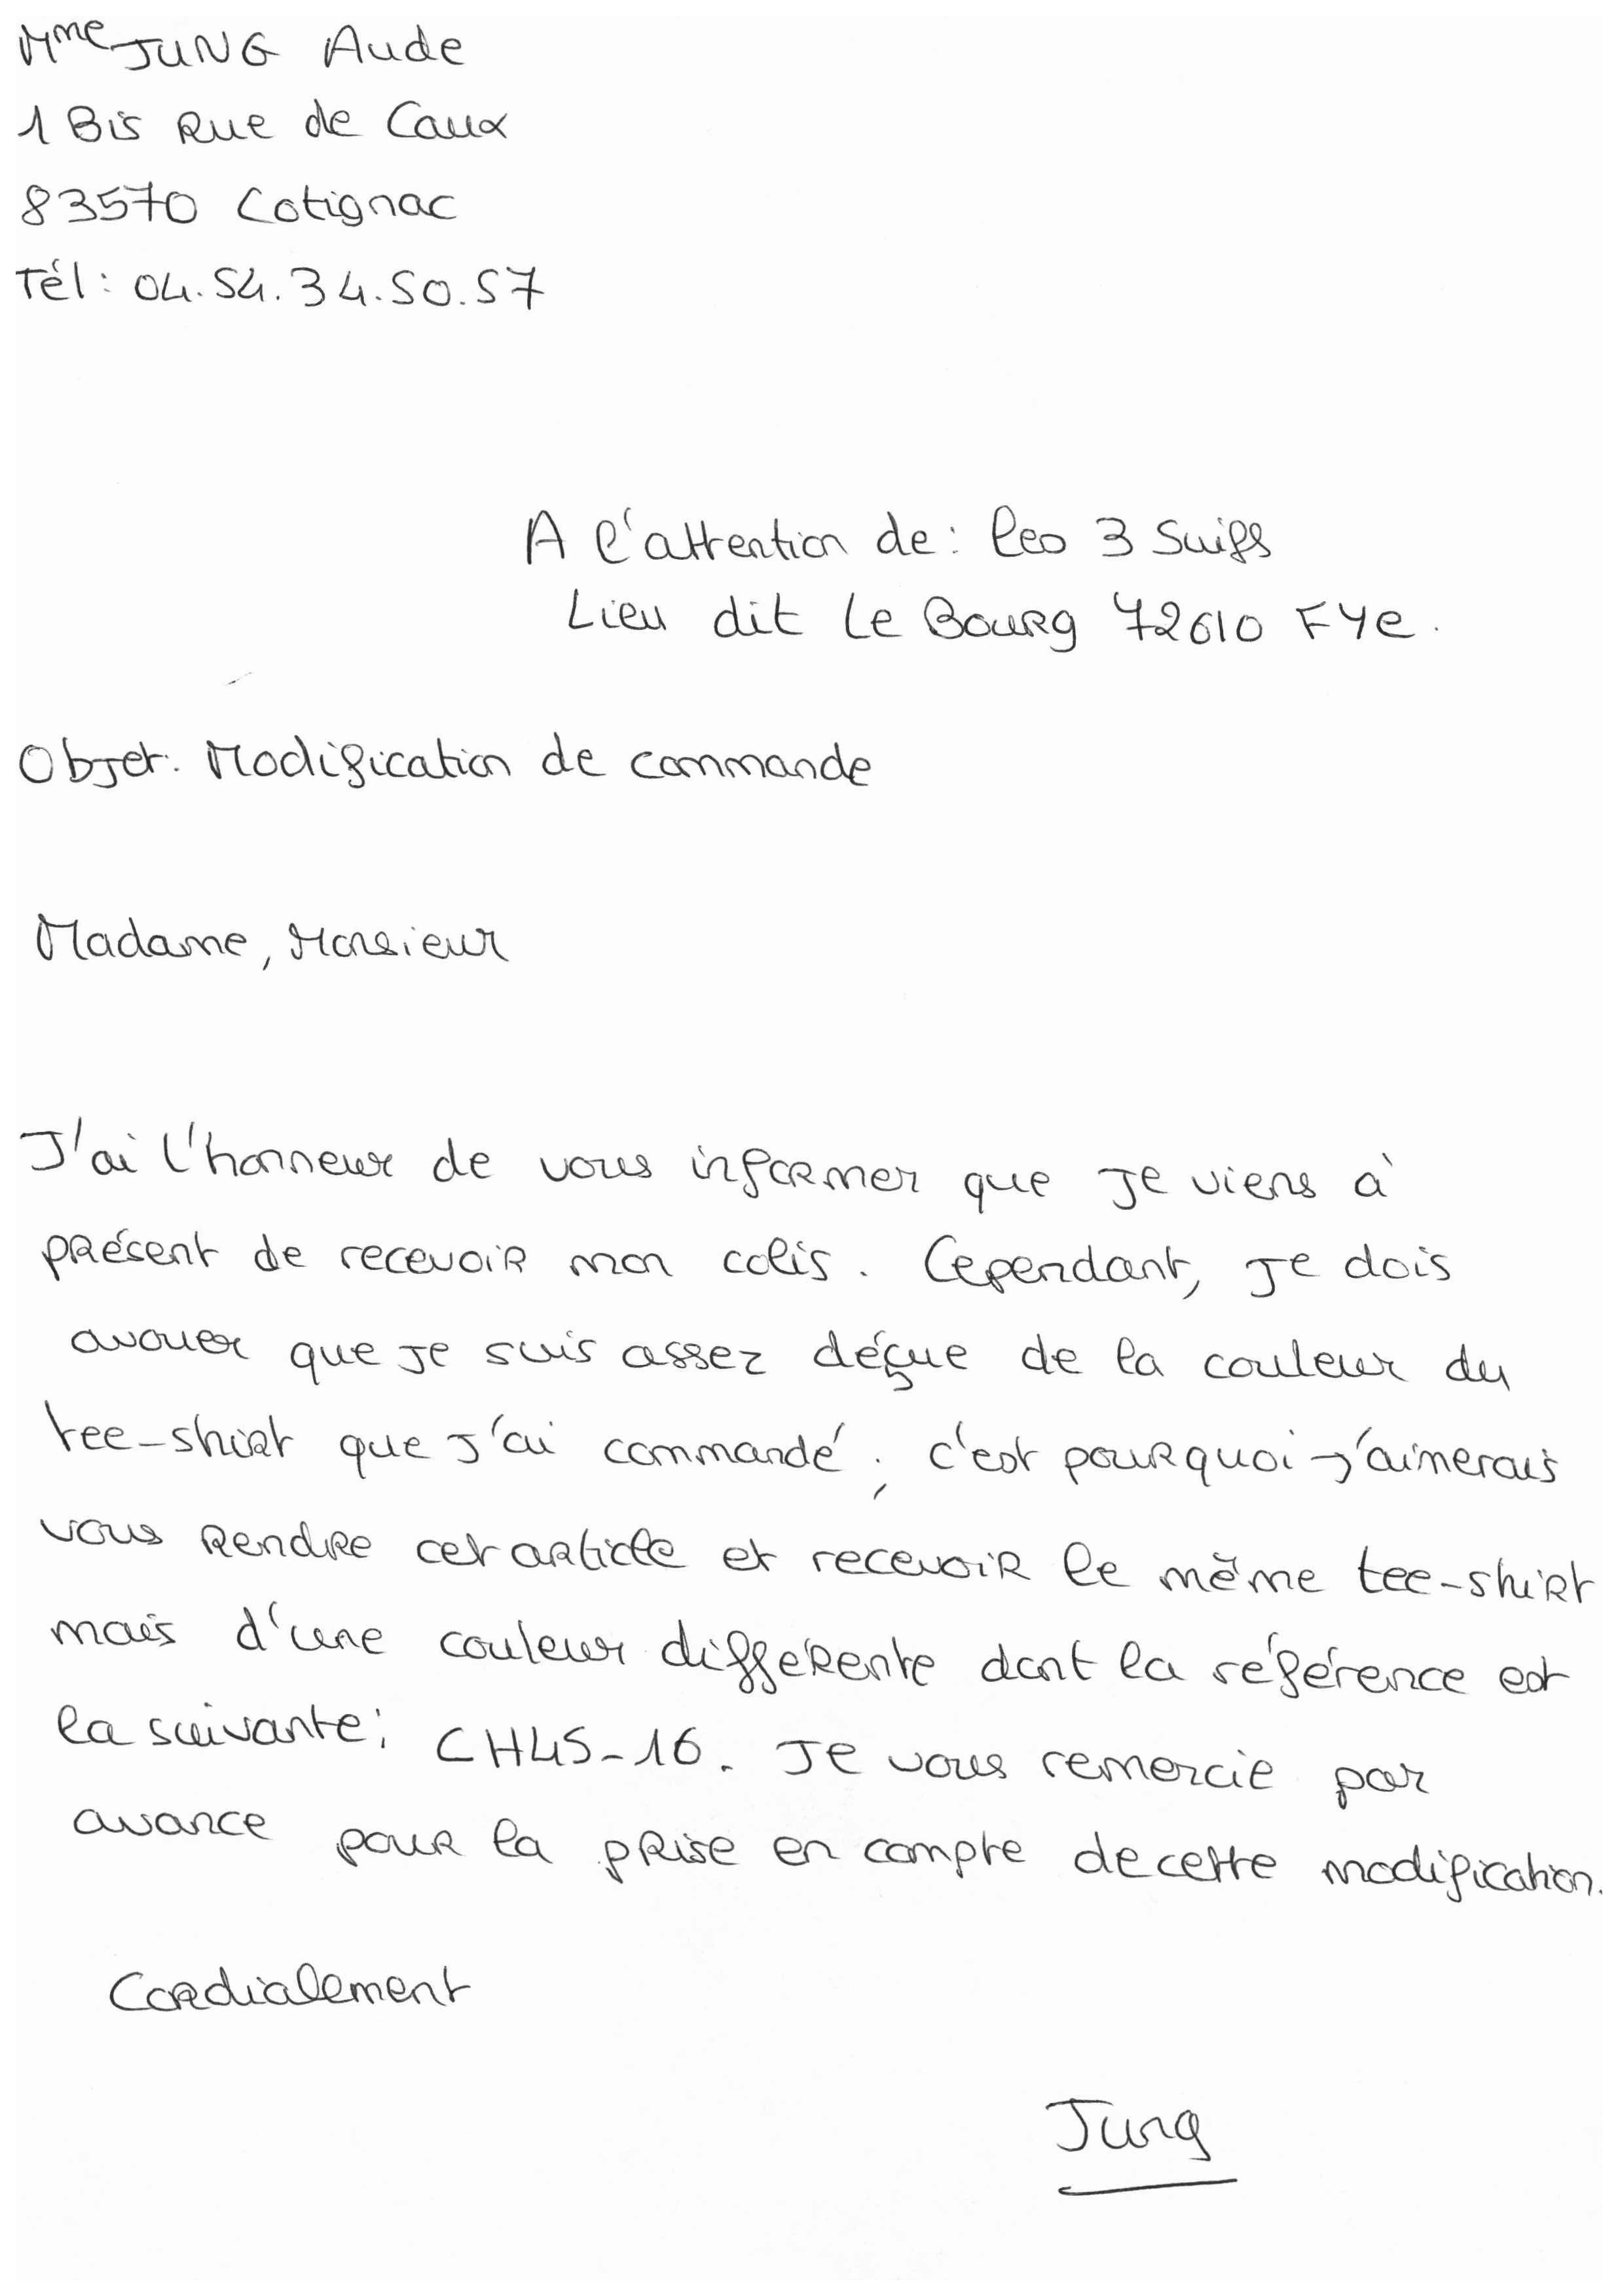 Mme JUNG Aude
1 Bis Rue de Caux
83570 Cotignac
Tél : 04.54.34.50.57
A l'attention de : les 3 Suiss
Lieu dit Le Bourg 72610 FYe.
Objet : Modification de commande
Madame, Monsieur
J'ai l'honneur de vous informer que je viens à
présent de recevoir mon colis. Cependant, je dois
avouer que je suis assez déçue de la couleur du
tee-shirt que j'ai commandé ; c'est pourquoi j'aimerais
vous rendre cet article et recevoir le même tee-shirt
mais d'une couleur différente dont la référence est
la suivante : CH45-16. Je vous remercie par
avance pour la prise en compte de cette modification.
Cordialement
Jung